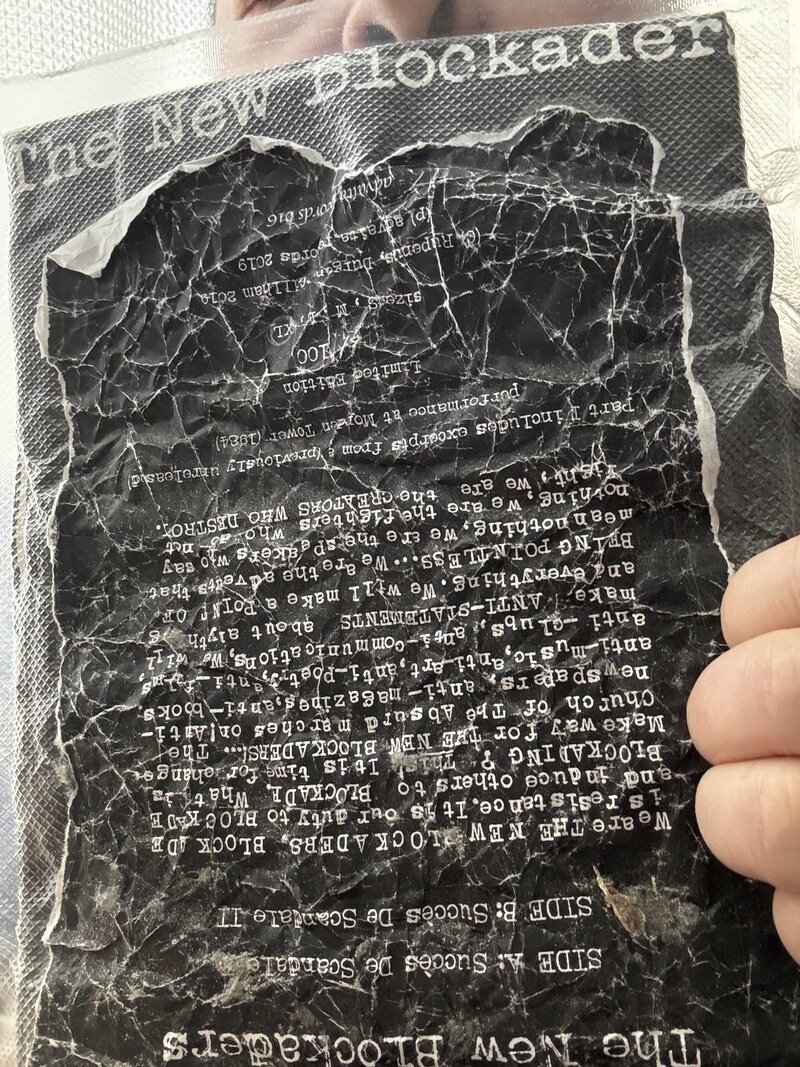 The New Blockader
The New Blockaders
SIDE A: Succès De Scandale
SIDE B: Succès De Scandale II
We are THE NEW BLOCKADERS. BLOCKADE
is resistance. It is our duty to BLOCKADE
and induce others to BLOCKADE. What is
BLOCKADING ? This! It is time for change.
Make way for THE NEW BLOCKADERS!... The
Church of The Absurd marches on! Anti-
newspapers, anti-magazines, anti-books
anti-music, anti-art, anti-poetry, anti-films,
anti-clubs, anti-communications, We will
make ANTI-STATEMENTS about anything
and everything. We will make a POINT OF
BEING POINTLESS.... We are the advetts that
mean nothing, we are the speakers who say
nothing, we are the fighters who do not
fight, we are the CREATORS WHO DESTROY.
Part I includes excerpts from a (previously unreleased)
purformance at Morden Tower (1984)
Limited Edition
/100
sizes , M, L, XL)
Rupenus, Durgan, Gillham 2019
(p) advaita records 2019
advaita records 016